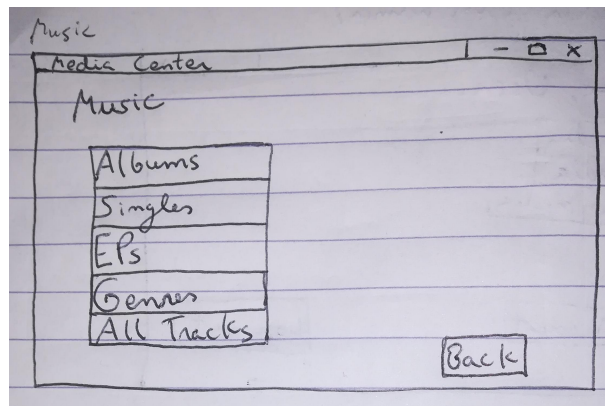 Music
Media Center
Music
Albums
Singles
EPs
Genres
All Tracks
Back